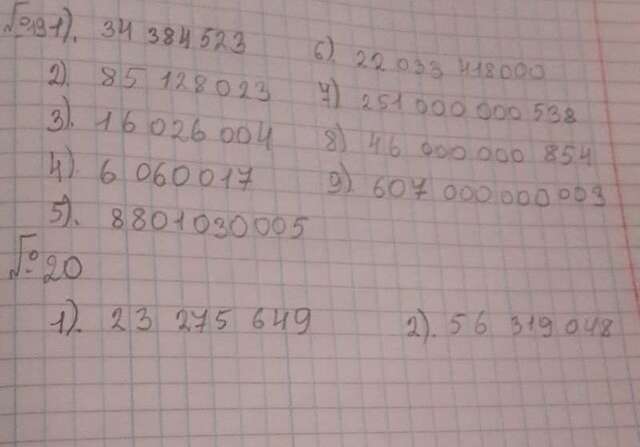 №19 1). 34 384 523
2). 85 128 023
3). 16 026 004
4). 6 060 017
5). 8801030005
6). 22 033 418000
7) 251 000 000 538
8) 46 000 000 854
9). 607 000 000 003
№20
1). 23 275 649
2). 56 319 048